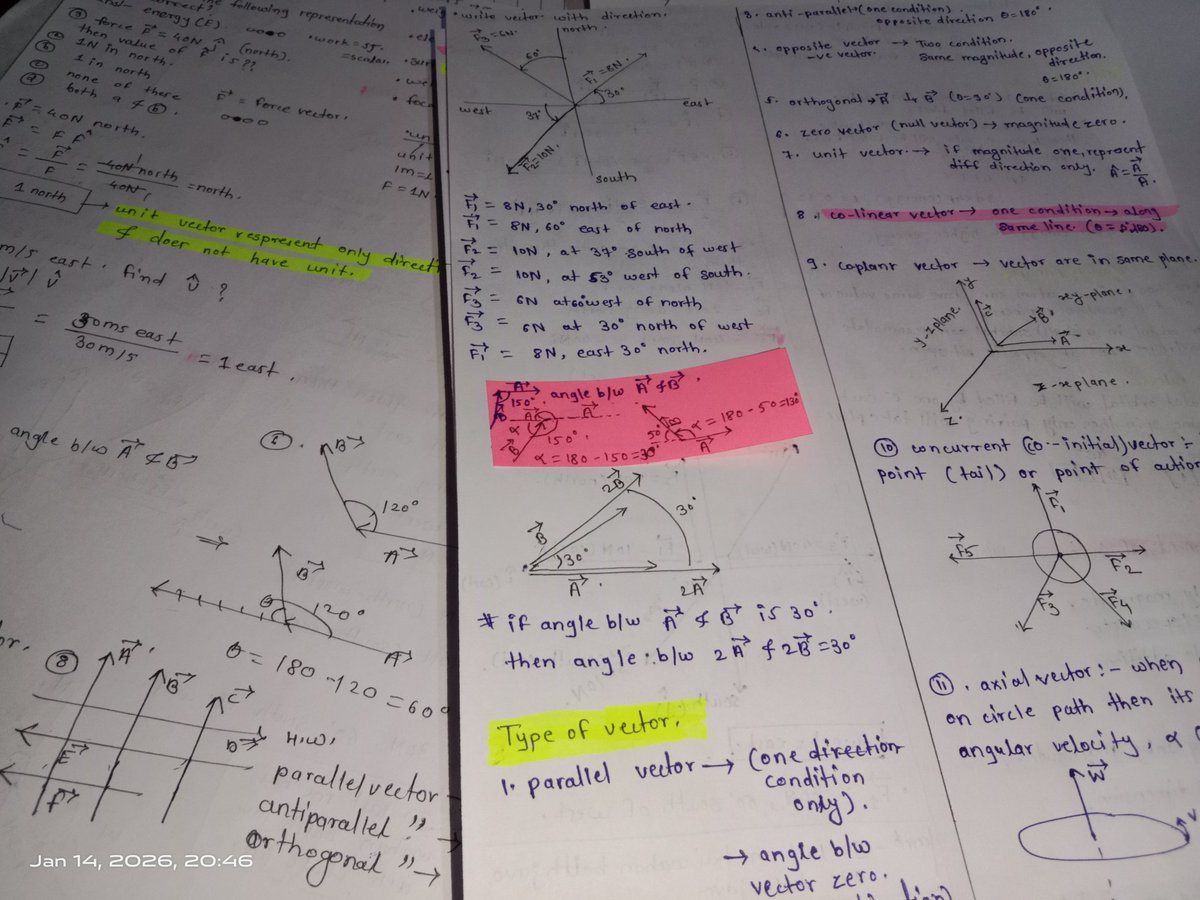 correct? following representation
and energy (E).
• work = 5J.
= scalar.
③ force F = 40N ĵ (north).
then value of F̂ is ??
ⓐ 1N in north.
ⓑ 1 in north
ⓒ none of these
ⓓ both a & ⓑ.
F⃗ = force vector.
. F⃗ = 40N north.
F⃗ = F F̂
= F⃗/F = 40N north/40N = north.
1 north
→ unit vector respresent only directi
& does not have unit.
m/s east. find v̂ ?
|v⃗| v̂
= 30ms east/30m/s = 1 east.
angle b/w A⃗ & B⃗
B⃗
120°
A⃗
⇒
B⃗
θ
120°
A⃗
θ = 180 - 120 = 60°
⑧ A⃗
B⃗
C⃗
D⃗
E⃗
F⃗
H.W.
parallel vector -
antiparallel " →
orthogonal " →
Jan 14, 2026, 20:46
unit
1m =
F = 1N
• write vector with direction.
north.
F⃗3 = 6N.
60°
F⃗1 = 8N.
30°
west
east
37°
F⃗2 = 10N.
south
F⃗1 = 8N, 30° north of east.
F⃗1 = 8N, 60° east of north
F⃗2 = 10N, at 37° south of west
F⃗2 = 10N, at 53° west of south.
F⃗3 = 6N at 60° west of north
F⃗3 = 6N at 30° north of west
F⃗1 = 8N, east 30° north.
A⃗ angle b/w A⃗ & B⃗.
150°
A⃗
α
150°.
B⃗
α = 180 - 150 = 30°
50°
B⃗
α = 180 - 50 = 130
A⃗
2B⃗
B⃗
30°
30°
A⃗
2A⃗
# if angle b/w A⃗ & B⃗ is 30°.
then angle b/w 2A⃗ & 2B⃗ = 30°
Type of vector.
1. parallel vector → (one direction
condition
only).
→ angle b/w
vector zero.
3. anti-parallel → (one condition)
opposite direction θ = 180°.
4. opposite vector → Two condition.
-ve vector. same magnitude, opposite
direction.
θ = 180°.
5. orthogonal → A⃗ ⊥r B⃗ (θ = 90°) (one condition).
6. zero vector (null vector) → magnitude zero.
7. unit vector. → if magnitude one, represent
diff direction only. Â = A⃗/A.
8. co-linear vector → one condition → along
same line. (θ = 0°,180).
9. coplant vector → vector are in same plane.
y
xy-plane.
y-z plane.
C⃗
B⃗
A⃗
x
z-x plane.
z
⑩ concurrent (co-initial) vector :-
point (tail) or point of action
F⃗1
F⃗5
F⃗2
F⃗3
F⃗4
⑪. axial vector :- when
on circle path then its
angular velocity, α (
W⃗
v